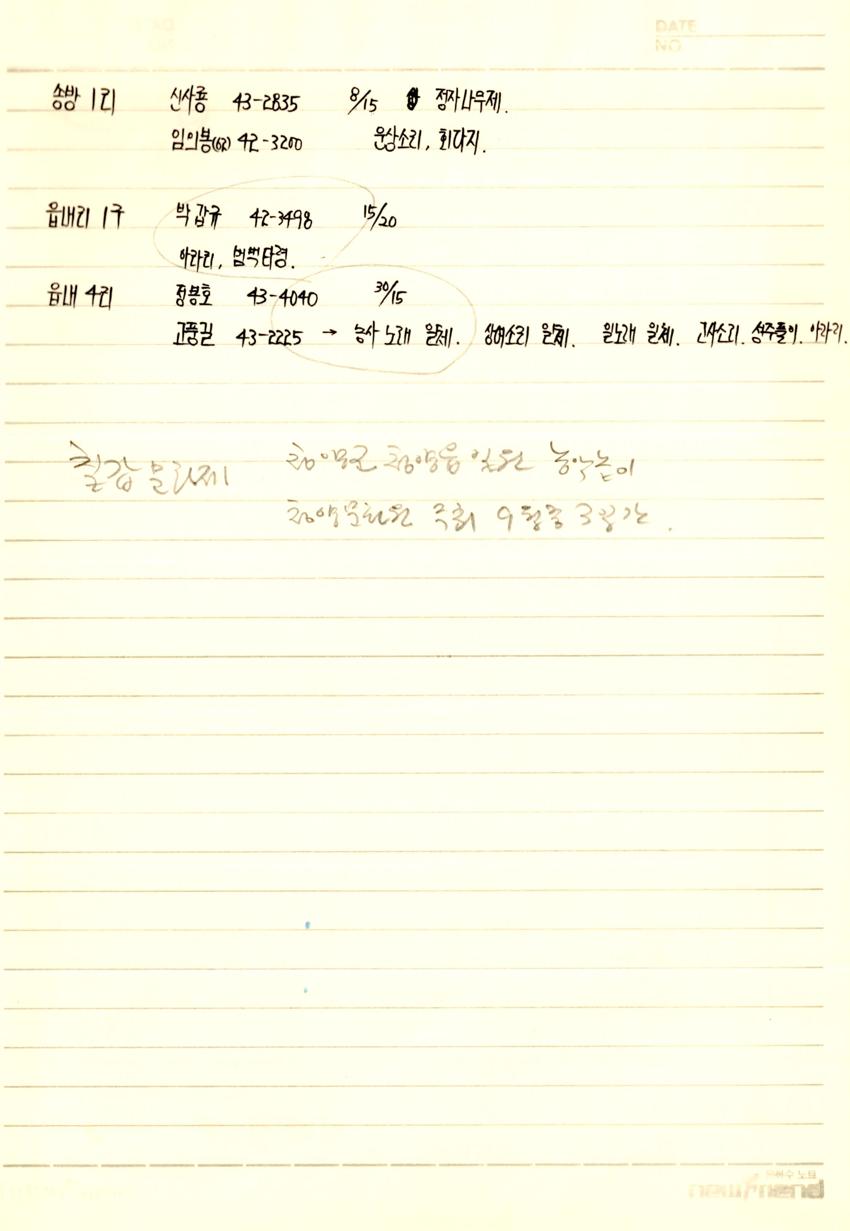 DATE
NO
송방 1리 신사룡 43-2835 8/15 정자나무제.
임의봉(62) 42-3200 운상소리, 회다지.
읍내리 1구 박갑규 42-3498 15/20
아라리, 범벅타령.
읍내 4리 정봉호 43-4040 30/15
고풍길 43-2225 → 농사 노래 일체. 상여소리 일체. 일노래 일체. 고사소리. 성주풀이. 아라리.
칠갑문화제 청양군 청양읍 일원 농악놀이
청양문화원 주최 9월중 3일간.
newfriend